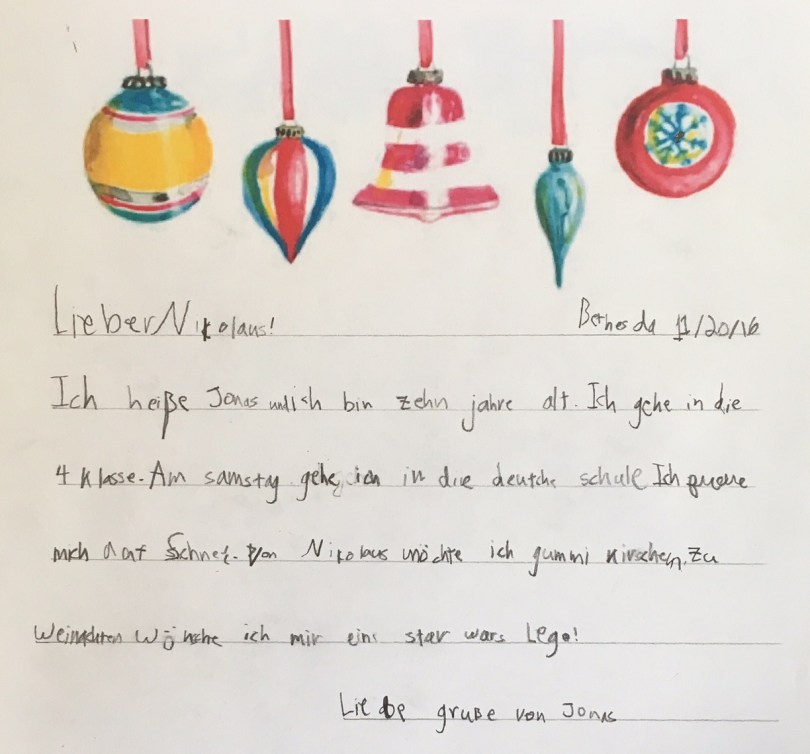 Lieber Nikolaus! Bethesda 11/20/16
Ich heiße Jonas und ich bin zehn jahre alt. Ich gehe in die
4 Klasse. Am samstag gehe ich in die deutche schule Ich
mich auf Schnee. Von Nikolaus möchte ich gummi kirschen. Zu
Weinachten Wünche ich mir ein star wars Lego!
Liebe gruße von Jonas